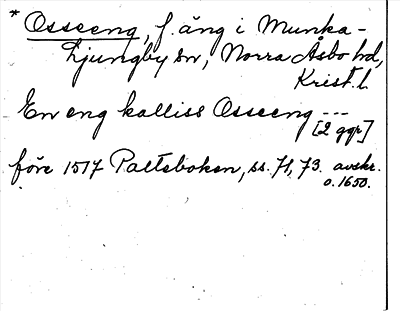 * Osseeng, f. äng i Munka-
Ljungby sn, Norra Åsbo hd,
Krist. l.
En eng kalliss Osseeng ---
[2 ggr]
före 1517 Paltsboken, ss. 71, 73. avskr.
o. 1650.